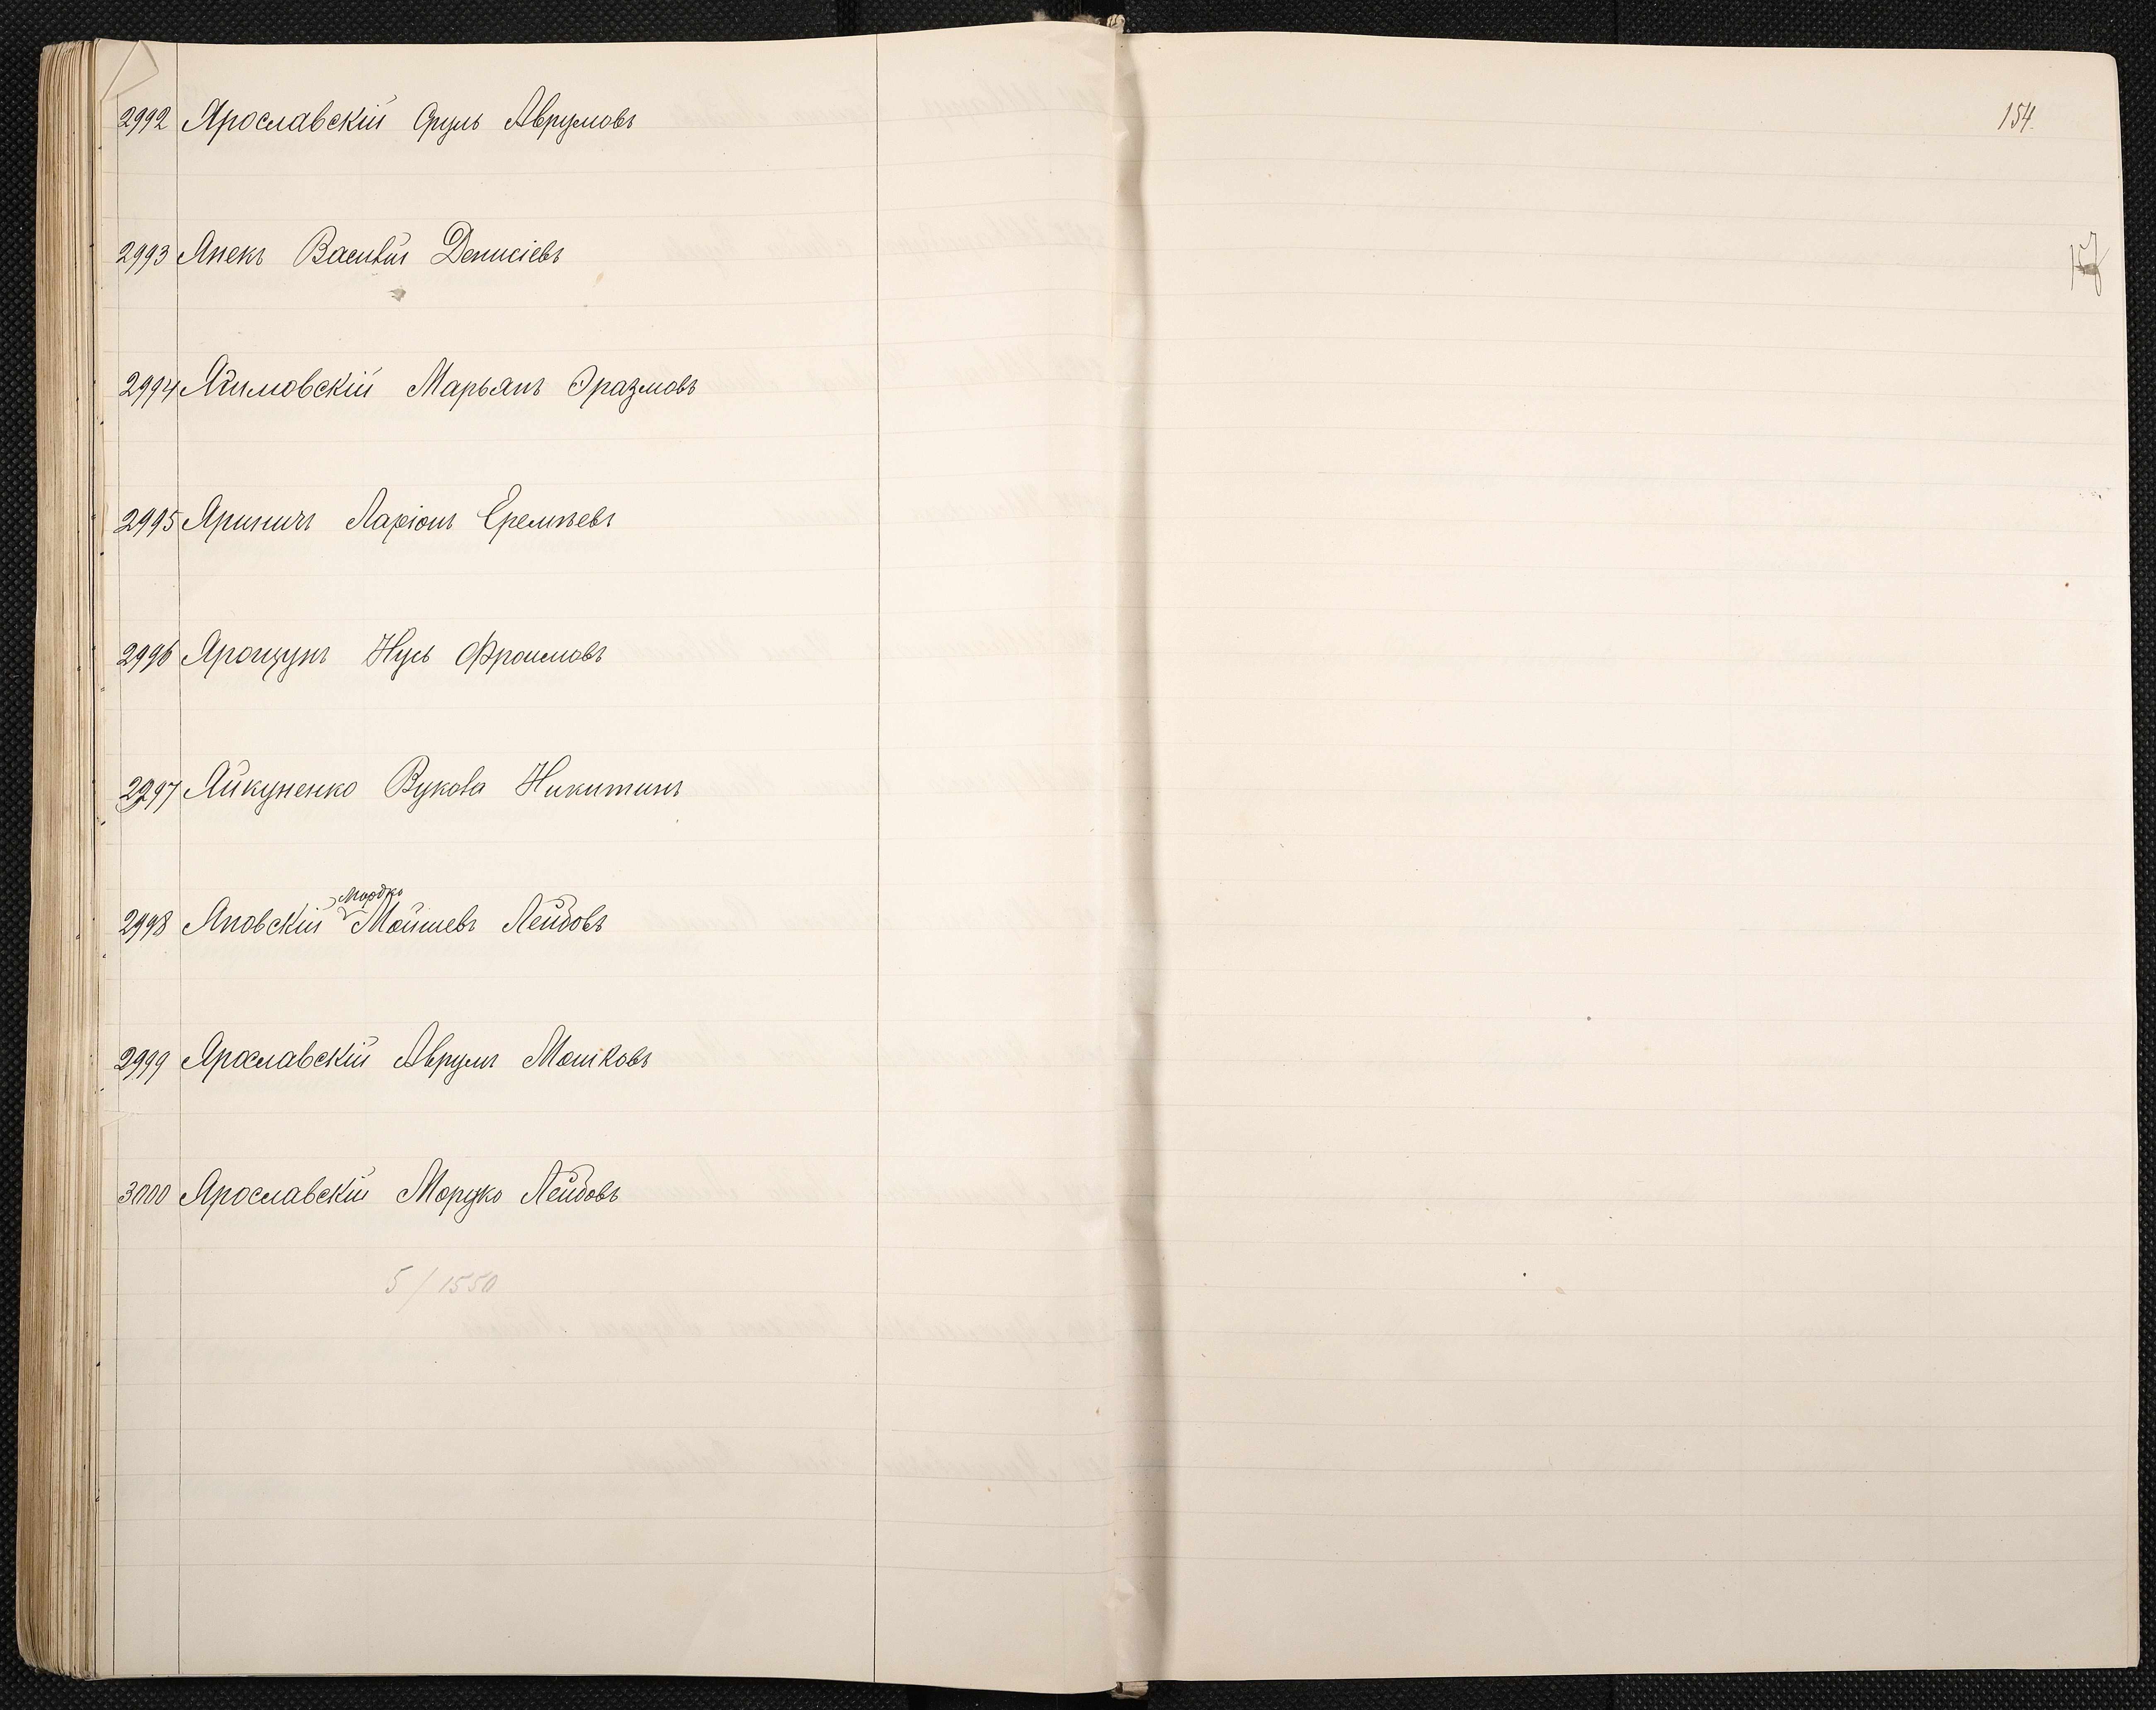 2992 Ярославскій Сруль Аврумовъ
154.
2993 Янекъ Василій Денисіевъ
2994 Ячимовскій Марьянъ Эразмовъ
2995 Яринич Ларіонъ Еремѣевъ
2996 Ярощукъ Нусь Фроимовъ
2997 Яйкуненко Вукова Никитинъ
Мордко
2998 Яновскій Мойшевъ Лейбовъ
2999 Ярославскій Аврумъ Мошковъ
3000 Ярославскій Моруко Лейбовъ
5/1550